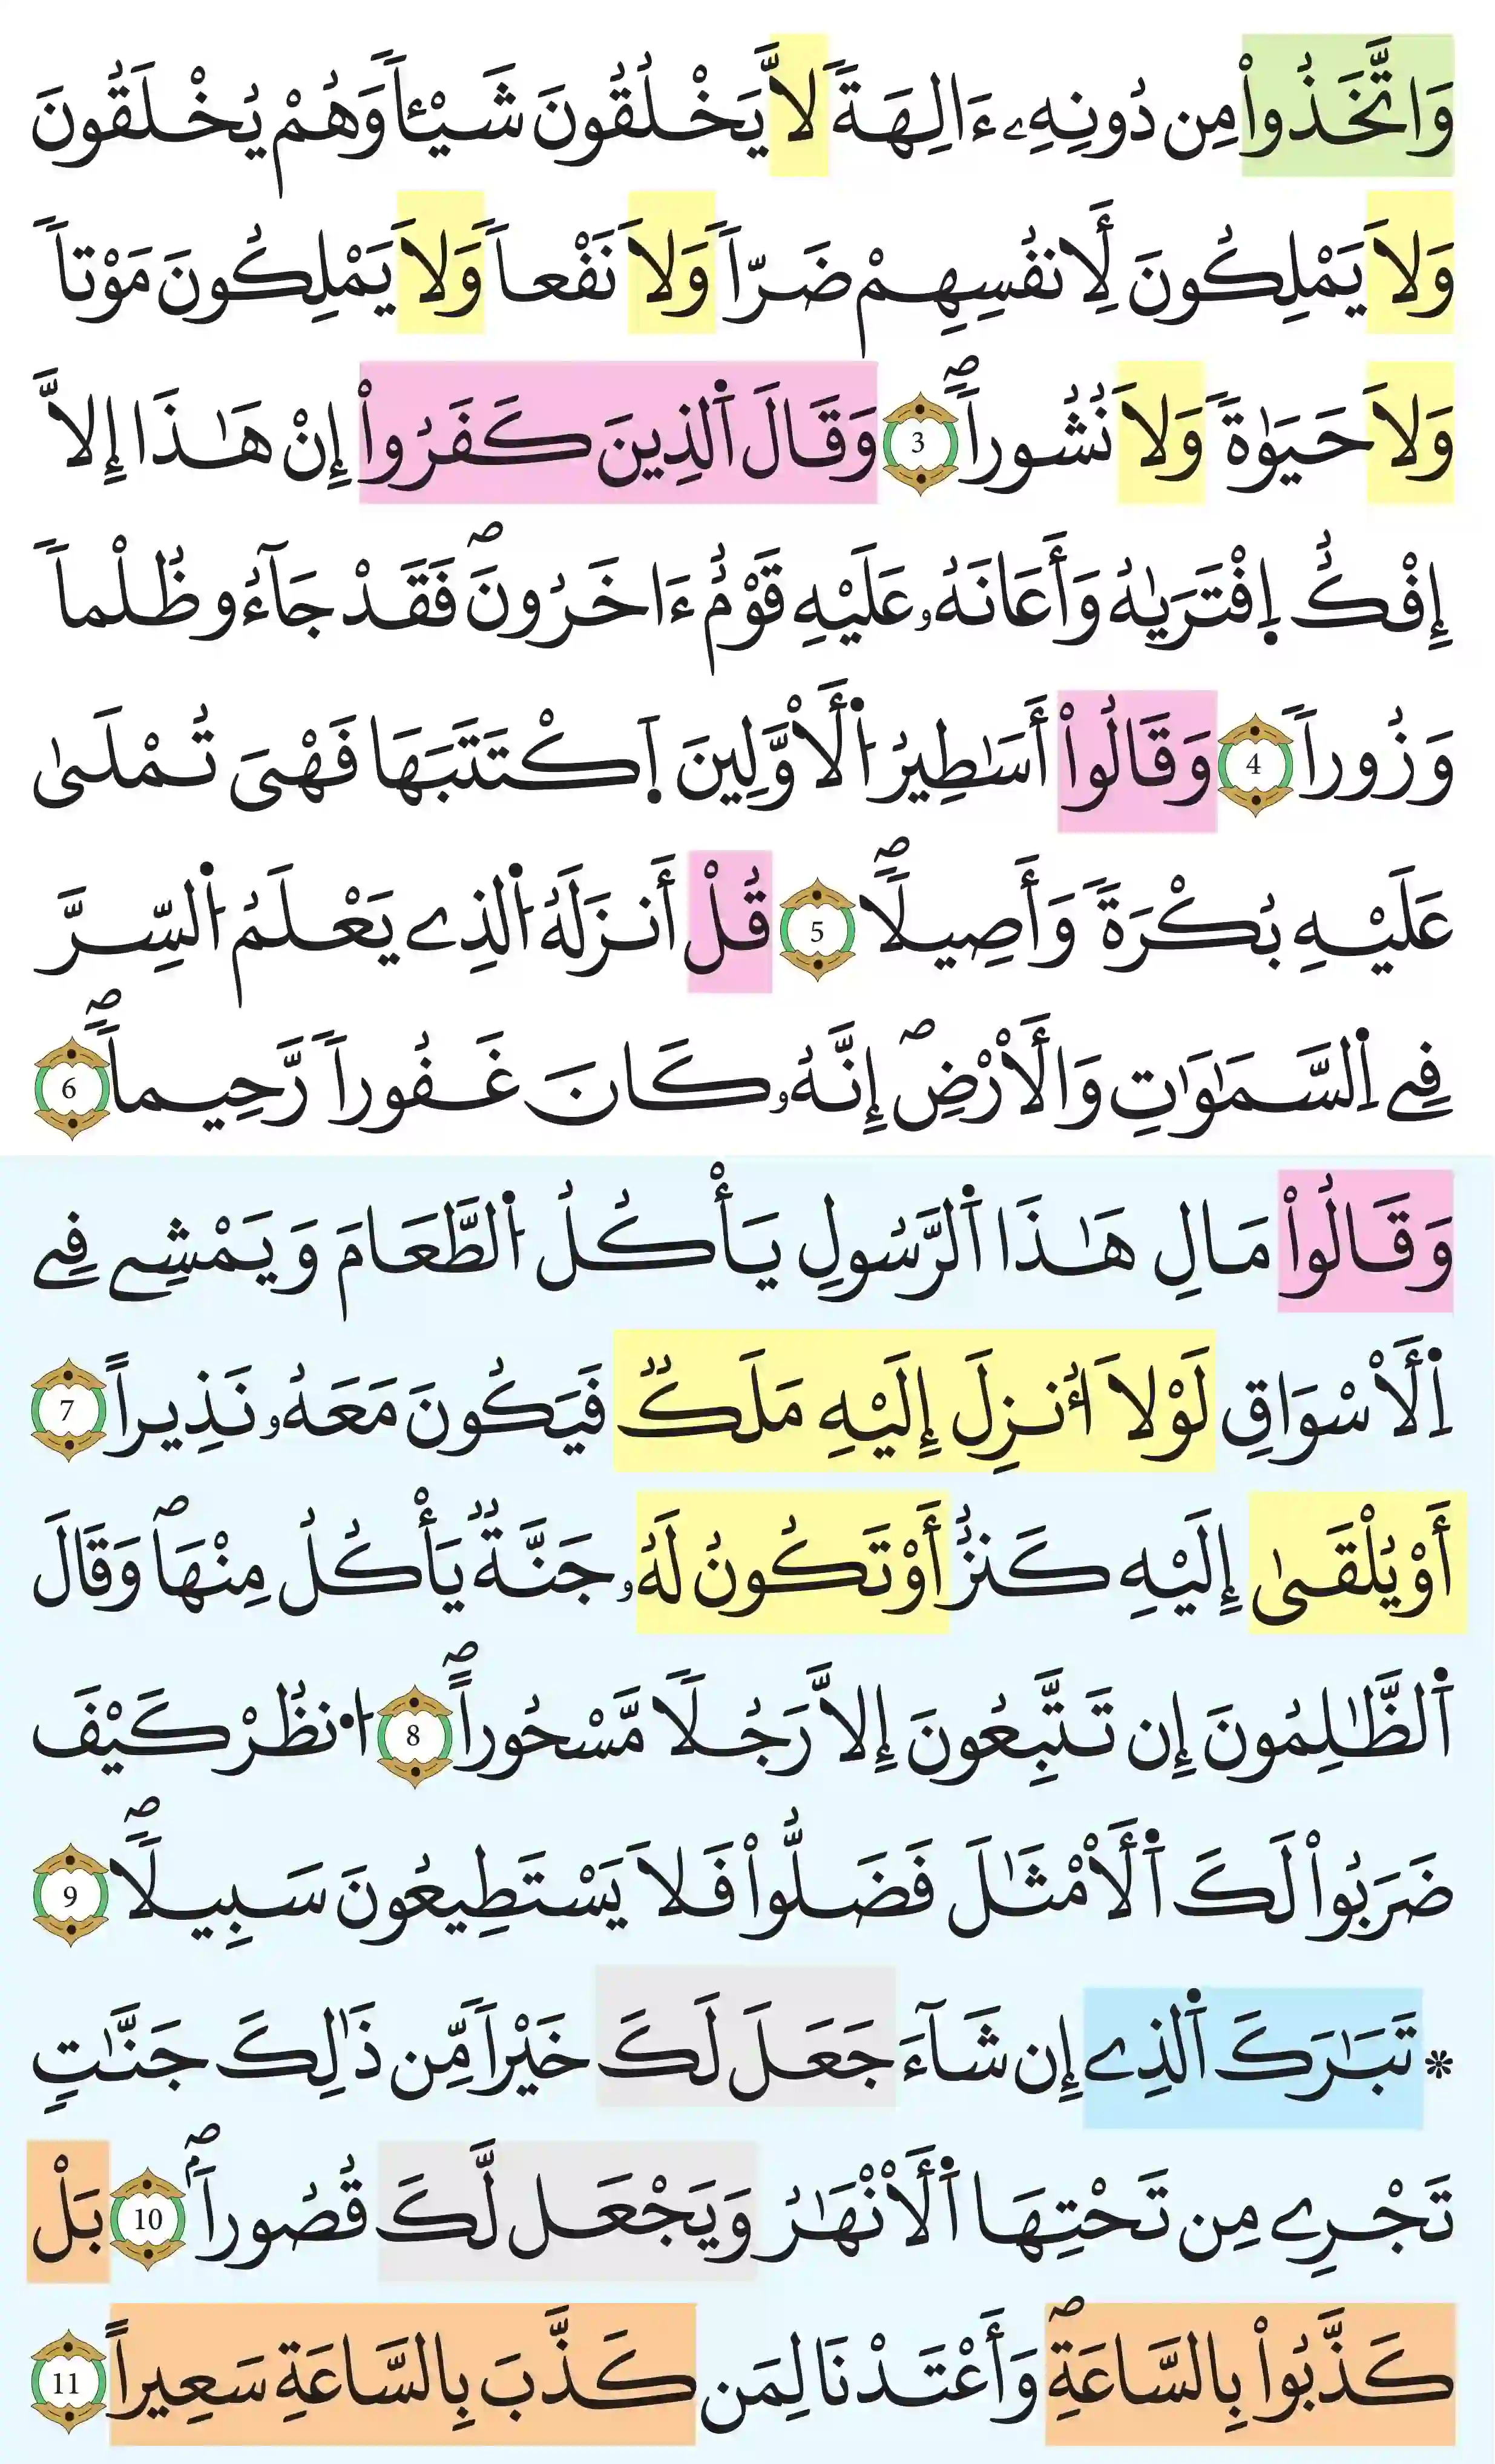 وَاتَّخَذُواْ مِن دُونِهِۦ ءَالِهَةً لاَّ يَخْلُقُونَ شَيْـٔاً وَهُمْ يُخْلَقُونَ
وَلاَ يَمْلِكُونَ لِأَنفُسِهِمْ ضَرّاً وَلاَ نَفْعاً وَلاَ يَمْلِكُونَ مَوْتاً
وَلاَ حَيَوٰةً وَلاَ نُشُوراًۖ 3 وَقَالَ اَ۬لذِينَ كَفَرُواْ إِنْ هَٰذَا إِلاَّ
إِفْكٌ اِ۪فْتَرَيٰهُ وَأَعَانَهُۥ عَلَيْهِ قَوْمٌ ءَاخَرُونَۖ فَقَدْ جَآءُو ظُلْماً
وَزُوراً 4 وَقَالُواْ أَسَٰطِيرُ اُ۬لْأَوَّلِينَ اَ۪كْتَتَبَهَا فَهْىَ تُمْلَىٰ
عَلَيْهِ بُكْرَةً وَأَصِيلًاۖ 5 قُلْ أَنزَلَهُ اُ۬لذِے يَعْلَمُ اُ۬لسِّرَّ
فِے اِ۬لسَّمَٰوَٰتِ وَالْأَرْضِۖ إِنَّهُۥ كَانَ غَفُوراً رَّحِيماًۖ 6
وَقَالُواْ مَالِ هَٰذَا اَ۬لرَّسُولِ يَأْكُلُ اُ۬لطَّعَامَ وَيَمْشِے فِے
اِ۬لْأَسْوَاقِ لَوْلاَ أُنزِلَ إِلَيْهِ مَلَكٌ فَيَكُونَ مَعَهُۥ نَذِيراً 7
أَوْ يُلْقَىٰ إِلَيْهِ كَنزٌ أَوْ تَكُونُ لَهُۥ جَنَّةٌ يَأْكُلُ مِنْهَاۖ وَقَالَ
اَ۬لظَّٰلِمُونَ إِن تَتَّبِعُونَ إِلاَّ رَجُلًا مَّسْحُوراًۖ 8 اُ۟نظُرْ كَيْفَ
ضَرَبُواْ لَكَ اَ۬لْأَمْثَٰلَ فَضَلُّواْ فَلاَ يَسْتَطِيعُونَ سَبِيلًاۖ 9
* تَبَٰرَكَ اَ۬لذِے إِن شَآءَ جَعَلَ لَكَ خَيْراً مِّن ذَٰلِكَ جَنَّٰتٍ
تَجْرِے مِن تَحْتِهَا اَ۬لْأَنْهَٰرُ وَيَجْعَل لَّكَ قُصُوراَۢۖ 10 بَلْ
كَذَّبُواْ بِالسَّاعَةِۖ وَأَعْتَدْنَا لِمَن كَذَّبَ بِالسَّاعَةِ سَعِيراً 11